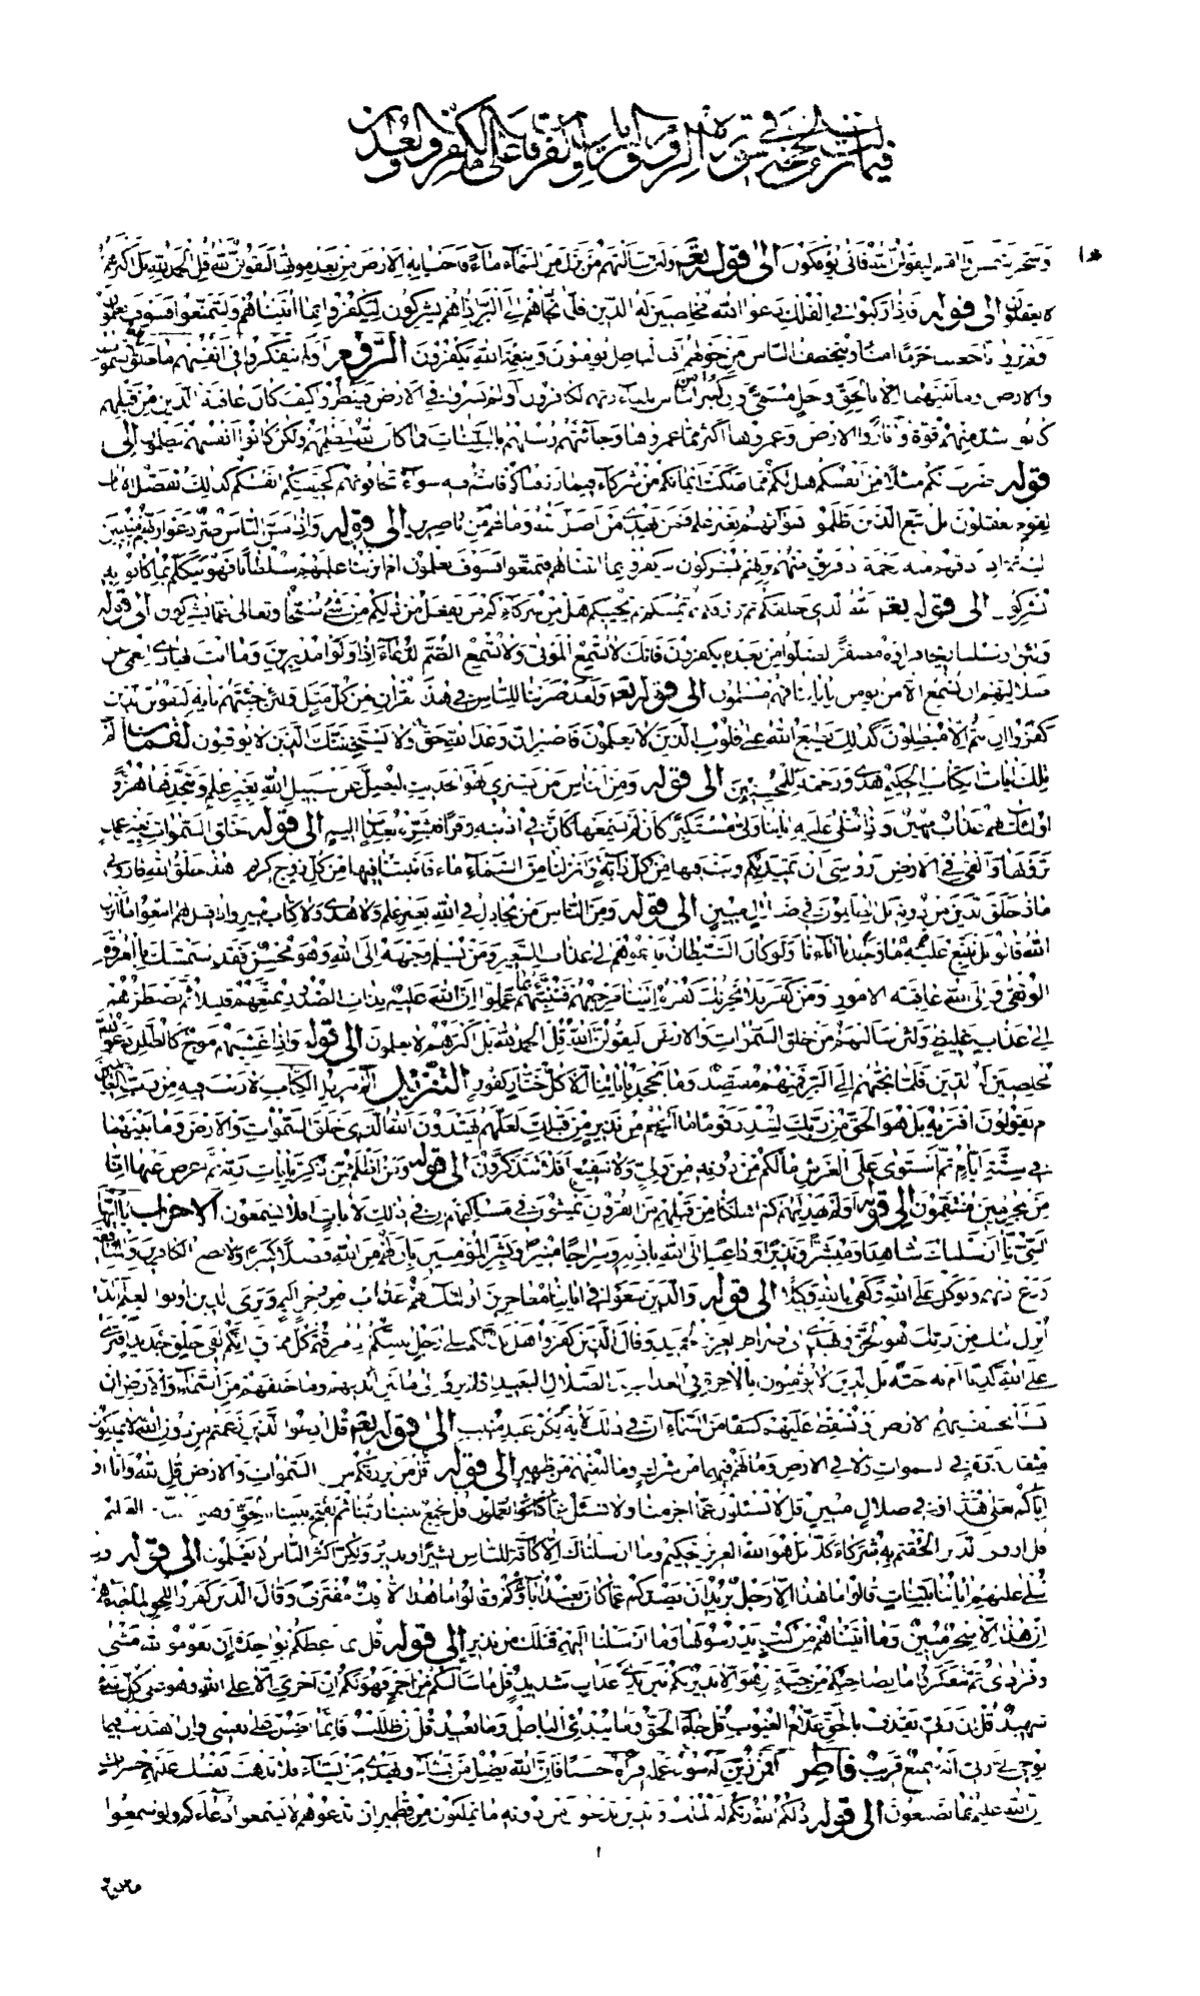 وسخر الشمس والقمر ليقولن الله فانى يؤفكون الى قوله تعالى ولئن سالتهم من نزل من السماء ماء فاحيا به الارض من بعد موتها ليقولن الله قل الحمد لله بل اكثرهم
لا يعقلون الى قوله فاذا ركبوا في الفلك دعوا الله مخلصين له الدين فلما نجاهم الى البر اذا هم يشركون ليكفروا بما اتيناهم وليتمتعوا فسوف يعلمون
اولم يروا انا جعلنا حرما امنا ويتخطف الناس من حولهم افبالباطل يؤمنون وبنعمة الله يكفرون الروم اولم يتفكروا في انفسهم ما خلق الله السموات
والارض وما بينهما الا بالحق واجل مسمى وان كثيرا من الناس بلقاء ربهم لكافرون اولم يسيروا في الارض فينظروا كيف كان عاقبة الذين من قبلهم
كانوا اشد منهم قوة واثاروا الارض وعمروها اكثر مما عمروها وجائتهم رسلهم بالبينات فما كان الله ليظلمهم ولكن كانوا انفسهم يظلمون الى
قوله ضرب لكم مثلا من انفسكم هل لكم مما ملكت ايمانكم من شركاء فيما رزقناكم فانتم فيه سواء تخافونهم كخيفتكم انفسكم كذلك نفصل الايات
لقوم يعقلون بل اتبع الذين ظلموا اهوائهم بغير علم فمن يهدي من اضل الله وما لهم من ناصرين الى قوله واذا مس الناس ضر دعوا ربهم منيبين
اليه ثم اذا اذاقهم منه رحمة اذا فريق منهم بربهم يشركون ليكفروا بما اتيناهم فتمتعوا فسوف تعلمون ام انزلنا عليهم سلطانا فهو يتكلم بما كانوا به
يشركون الى قوله تعالى الله الذي خلقكم ثم رزقكم ثم يميتكم ثم يحييكم هل من شركائكم من يفعل من ذلكم من شئ سبحانه وتعالى عما يشركون الى قوله
ولئن ارسلنا ريحا فراوه مصفرا لظلوا من بعده يكفرون فانك لا تسمع الموتى ولا تسمع الصم الدعاء اذا ولوا مدبرين وما انت بهادي العمى عن
ضلالتهم ان تسمع الا من يؤمن باياتنا فهم مسلمون الى قوله تعالى ولقد ضربنا للناس في هذا القران من كل مثل ولئن جئتهم باية ليقولن الذين
كفروا ان انتم الا مبطلون كذلك يطبع الله على قلوب الذين لا يعلمون فاصبر ان وعد الله حق ولا يستخفنك الذين لا يوقنون لقمان الم
تلك ايات الكتاب الحكيم هدى ورحمة للمحسنين الى قوله ومن الناس من يشتري لهو الحديث ليضل عن سبيل الله بغير علم ويتخذها هزوا
اولئك لهم عذاب مهين واذا تتلى عليه اياتنا ولى مستكبرا كان لم يسمعها كان في اذنيه وقرا فبشره بعذاب اليم الى قوله خلق السموات بغير عمد
ترونها والقى في الارض رواسي ان تميد بكم وبث فيها من كل دابة وانزلنا من السماء ماء فانبتنا فيها من كل زوج كريم هذا خلق الله فاروني
ماذا خلق الذين من دونه بل الظالمون في ضلال مبين الى قوله ومن الناس من يجادل في الله بغير علم ولا هدى ولا كتاب منير واذا قيل لهم اتبعوا ما انزل
الله قالوا بل نتبع ما وجدنا عليه اباءنا اولو كان الشيطان يدعوهم الى عذاب السعير ومن يسلم وجهه الى الله وهو محسن فقد استمسك بالعروة
الوثقى والى الله عاقبة الامور ومن كفر فلا يحزنك كفره الينا مرجعهم فننبئهم بما عملوا ان الله عليم بذات الصدور نمتعهم قليلا ثم نضطرهم
الى عذاب غليظ ولئن سالتهم من خلق السموات والارض ليقولن الله قل الحمد لله بل اكثرهم لا يعلمون الى قوله واذا غشيهم موج كالظلل دعوا الله
مخلصين له الدين فلما نجاهم الى البر فمنهم مقتصد وما يجحد باياتنا الا كل ختار كفور التنزيل الم تنزيل الكتاب لا ريب فيه من رب العالمين
ام يقولون افتريه بل هو الحق من ربك لتنذر قوما ما اتيهم من نذير من قبلك لعلهم يهتدون الله الذي خلق السموات والارض وما بينهما
في ستة ايام ثم استوى على العرش ما لكم من دونه من ولي ولا شفيع افلا تتذكرون الى قوله ومن اظلم ممن ذكر بايات ربه ثم اعرض عنها انا
من المجرمين منتقمون الى قوله اولم يهد لهم كم اهلكنا من قبلهم من القرون يمشون في مساكنهم ان في ذلك لايات افلا يسمعون الاحزاب يا ايها
النبي انا ارسلناك شاهدا ومبشرا ونذيرا وداعيا الى الله باذنه وسراجا منيرا وبشر المؤمنين بان لهم من الله فضلا كبيرا ولا تطع الكافرين والمنافقين
ودع اذيهم وتوكل على الله وكفى بالله وكيلا الى قوله والذين سعوا في اياتنا معاجزين اولئك لهم عذاب من رجز اليم ويرى الذين اوتوا العلم الذي
انزل اليك من ربك هو الحق ويهدي الى صراط العزيز الحميد وقال الذين كفروا هل ندلكم على رجل ينبئكم اذا مزقتم كل ممزق انكم لفي خلق جديد افترى
على الله كذبا ام به جنة بل الذين لا يؤمنون بالاخرة في العذاب والضلال البعيد افلم يروا الى ما بين ايديهم وما خلفهم من السماء والارض ان
نشا نخسف بهم الارض او نسقط عليهم كسفا من السماء ان في ذلك لاية لكل عبد منيب الى قوله تعالى قل ادعوا الذين زعمتم من دون الله لا يملكون
مثقال ذرة في السموات ولا في الارض وما لهم فيهما من شرك وما له منهم من ظهير الى قوله قل من يرزقكم من السموات والارض قل الله وانا او
اياكم لعلى هدى او في ضلال مبين قل لا تسئلون عما اجرمنا ولا نسئل عما تعملون قل يجمع بيننا ربنا ثم يفتح بيننا بالحق وهو الفتاح العليم
قل اروني الذين الحقتم به شركاء كلا بل هو الله العزيز الحكيم وما ارسلناك الا كافة للناس بشيرا ونذيرا ولكن اكثر الناس لا يعلمون الى قوله واذا
تتلى عليهم اياتنا بينات قالوا ما هذا الا رجل يريد ان يصدكم عما كان يعبد اباؤكم وقالوا ما هذا الا افك مفترى وقال الذين كفروا للحق لما جاءهم
ان هذا الا سحر مبين وما اتيناهم من كتب يدرسونها وما ارسلنا اليهم قبلك من نذير الى قوله قل انما اعظكم بواحدة ان تقوموا لله مثنى
وفرادى ثم تتفكروا ما بصاحبكم من جنة ان هو الا نذير لكم بين يدي عذاب شديد قل ما سالتكم من اجر فهو لكم ان اجري الا على الله وهو على كل شئ
شهيد قل ان ربي يقذف بالحق علام الغيوب قل جاء الحق وما يبدئ الباطل وما يعيد قل ان ضللت فانما اضل على نفسى وان اهتديت فبما
يوحي الي ربي انه سميع قريب فاطر افمن زين له سوء عمله فراه حسنا فان الله يضل من يشاء ويهدي من يشاء فلا تذهب نفسك عليهم حسرات
ان الله عليم بما يصنعون الى قوله ذلكم الله ربكم له الملك والذين تدعون من دونه ما يملكون من قطمير ان تدعوهم لا يسمعوا دعاءكم ولو سمعوا